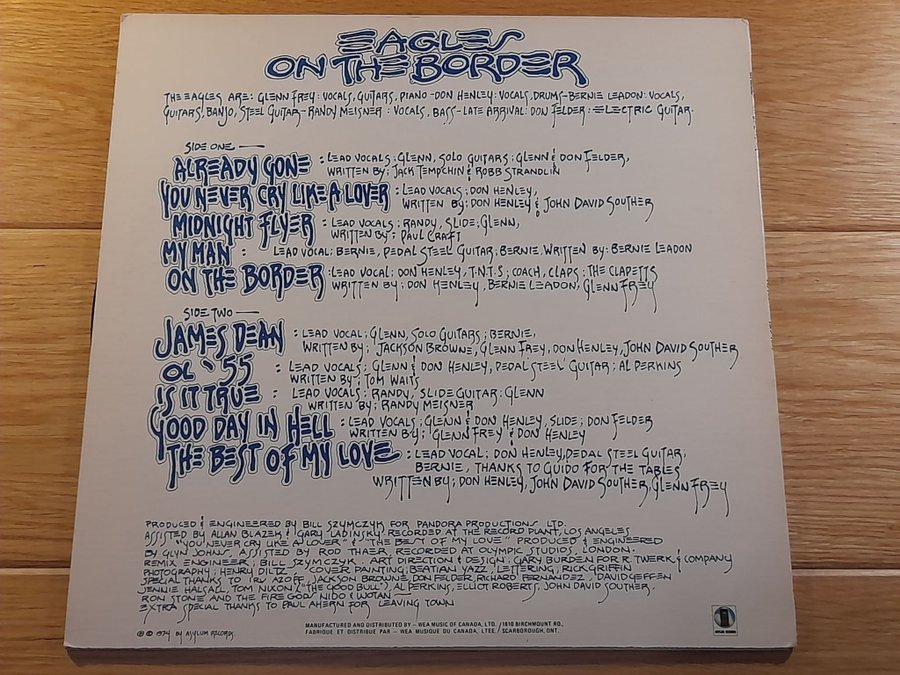 EAGLES
ON THE BORDER
THE EAGLES ARE: GLENN FREY: VOCALS, GUITARS, PIANO-DON HENLEY: VOCALS, DRUMS-BERNIE LEADON: VOCALS,
GUITARS, BANJO, STEEL GUITAR-RANDY MEISNER: VOCALS, BASS-LATE ARRIVAL: DON FELDER: ELECTRIC GUITAR.
SIDE ONE—
ALREADY GONE : LEAD VOCALS; GLENN, SOLO GUITARS; GLENN & DON FELDER,
WRITTEN BY; JACK TEMPCHIN & ROBB STRANDLIN
YOU NEVER CRY LIKE A LOVER : LEAD VOCALS; DON HENLEY,
WRITTEN BY: DON HENLEY & JOHN DAVID SOUTHER
MIDNIGHT FLYER : LEAD VOCALS; RANDY, SLIDE; GLENN,
WRITTEN BY: PAUL CRAFT
MY MAN : LEAD VOCAL; BERNIE, PEDAL STEEL GUITAR; BERNIE, WRITTEN BY: BERNIE LEADON
ON THE BORDER : LEAD VOCAL; DON HENLEY, T.N.T.S; COACH, CLAPS; THE CLAPETTS
WRITTEN BY; DON HENLEY, BERNIE LEADON, GLENN FREY
SIDE TWO—
JAMES DEAN : LEAD VOCAL; GLENN, SOLO GUITARS; BERNIE,
WRITTEN BY; JACKSON BROWNE, GLENN FREY, DON HENLEY, JOHN DAVID SOUTHER
OL '55 : LEAD VOCALS; GLENN & DON HENLEY, PEDAL STEEL GUITAR; AL PERKINS
WRITTEN BY; TOM WAITS
IS IT TRUE : LEAD VOCALS; RANDY, SLIDE GUITAR: GLENN
WRITTEN BY; RANDY MEISNER
GOOD DAY IN HELL : LEAD VOCALS; GLENN & DON HENLEY, SLIDE; DON FELDER
WRITTEN BY; GLENN FREY & DON HENLEY
THE BEST OF MY LOVE : LEAD VOCAL; DON HENLEY, PEDAL STEEL GUITAR;
BERNIE, THANKS TO GUIDO FOR THE TABLES
WRITTEN BY; DON HENLEY, JOHN DAVID SOUTHER, GLENN FREY
PRODUCED & ENGINEERED BY BILL SZYMCZYK FOR PANDORA PRODUCTIONS LTD.
ASSISTED BY ALLAN BLAZEK & GARY LADINSKY. RECORDED AT THE RECORD PLANT, LOS ANGELES
"YOU NEVER CRY LIKE A LOVER" & "THE BEST OF MY LOVE" PRODUCED & ENGINEERED
BY GLYN JOHNS, ASSISTED BY ROD THAER, RECORDED AT OLYMPIC STUDIOS, LONDON.
REMIX ENGINEER, BILL SZYMCZYK. ART DIRECTION & DESIGN; GARY BURDEN FOR R. TWERK & COMPANY
PHOTOGRAPHY; HENRY DILTZ COVER PAINTING, BEATIAN YAZZ, LETTERING, RICK GRIFFIN
SPECIAL THANKS TO IRV AZOFF, JACKSON BROWNE, DON FELDER, RICHARD FERNANDEZ, DAVID GEFFEN
JENNIE HALSALL, TOM NIXON ("THE GOOD BULL") AL PERKINS, ELLIOT ROBERTS, JOHN DAVID SOUTHER.
RON STONE AND THE FIRE GODS NIDO & WOTAN
EXTRA SPECIAL THANKS TO PAUL AHERN FOR LEAVING TOWN
℗ © 1974 BY ASYLUM RECORDS.
MANUFACTURED AND DISTRIBUTED BY – WEA MUSIC OF CANADA, LTD./1810 BIRCHMOUNT RD.,
FABRIQUE ET DISTRIBUE PAR – WEA MUSIQUE DU CANADA, LTEE./SCARBOROUGH, ONT.
ASYLUM RECORDS